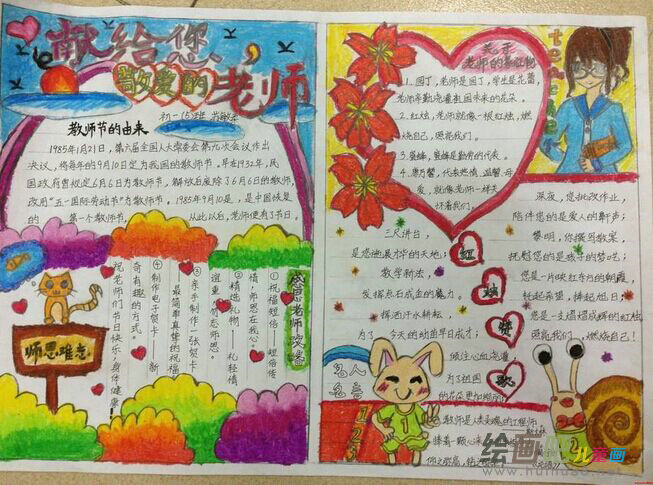 献给您,
敬爱的老师
初一(5)班
教师节的由来
1985年1月21日,第六届全国人大常委会第九次会议作出
决议,将每年的9月10日定为我国的教师节。早在1932年,民
国政府曾规定6月6日为教师节,解放后废除了6月6日的教师节,
改用“五一国际劳动节”为教师节。1985年9月10是,是中国恢复
的 第一个教师节。 从此以后,老师便有了节日。
感恩老师
①祝福短信——短信传
情,师恩在我心。
②精选礼物——礼轻情
谊重,
③亲手制作一张贺卡
——最简单真挚的祝福
④制作电子贺卡——新
奇有趣的方式。
祝老师们节日快乐,身体健康
师恩难忘
关于
老师的
teacher
1.园丁,老师是园丁,学生是花蕾,
老师辛勤浇灌祖国未来的花朵。
2.红烛,老师就像一根红烛,燃
烧自己,照亮我们。
3.蜜蜂,蜜蜂是勤劳的代表。
4.康乃馨,代表热情 温馨 母
爱,就像老师一样关
怀着我们。
三尺讲台,
是您施展才华的天地;
教学新法,
发挥点石成金的魔力。
挥洒汗水耕耘,
为了 今天的幼苗早日成才,
倾注心血浇灌,
为了祖国
的花朵更加艳丽。
红
烛
赞
歌
深夜,您批改作业,
陪伴您的是爱人的鼾声;
黎明,你撰写教案,
抚慰您的是孩子的梦呓;
您是一片映红东方的朝霞,
托起希望,捧起旭日;
您是一支熠熠成辉的红烛
照亮我们,燃烧自己!
名人
名言
123
教师是人类灵魂的工程师
捧着一颗心来
绘画
儿童画